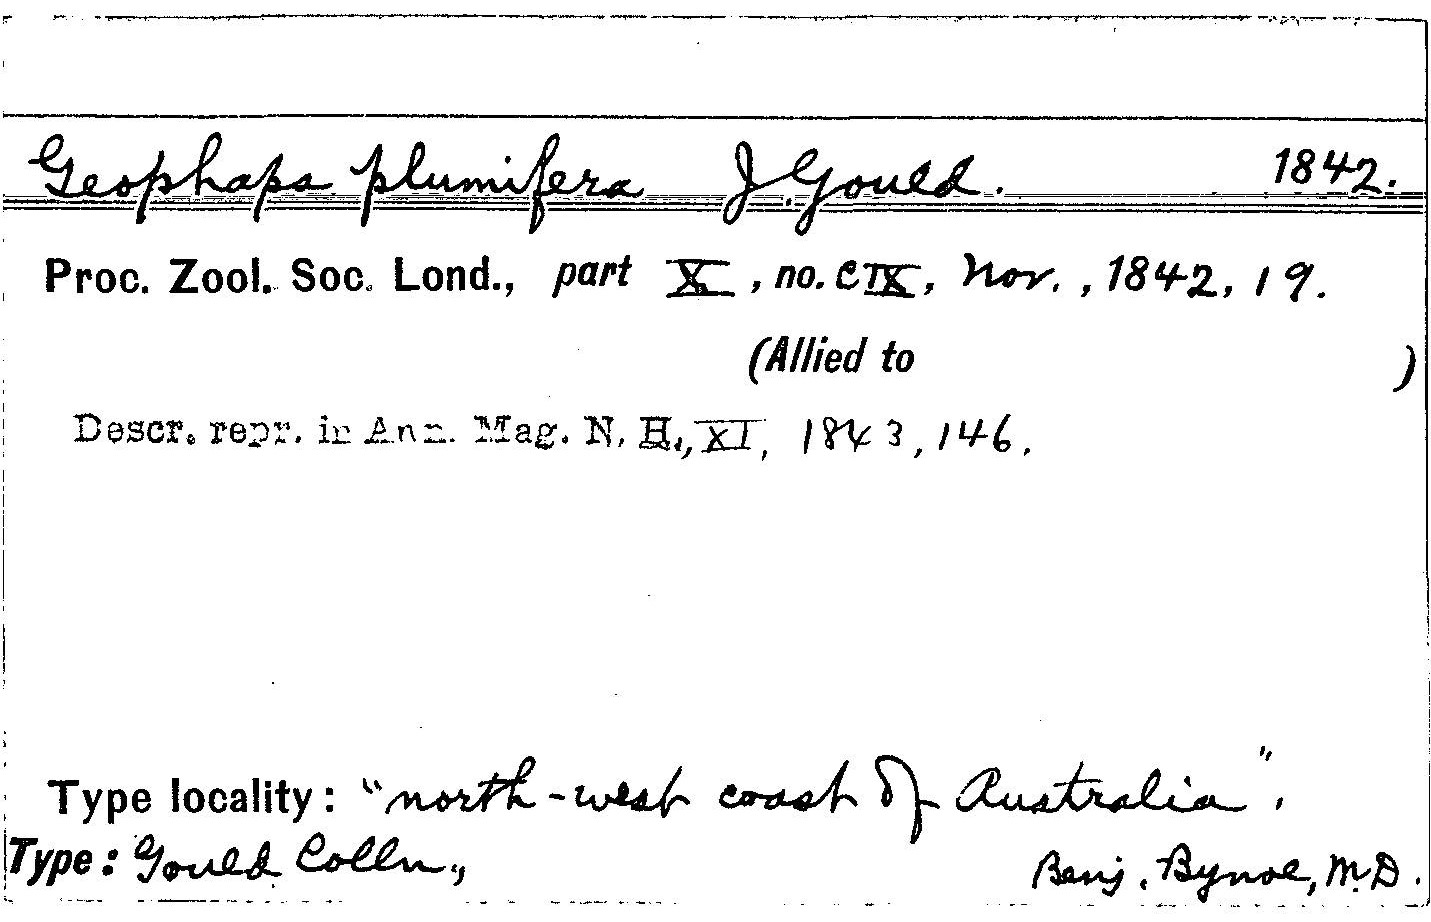 Geophaps plumifera J. Gould. 1842.
Proc. Zool. Soc. Lond., part X, no. CIX, Nov., 1842, 19.
(Allied to )
Descr. repr. in Ann. Mag. N. H., XI, 1843, 146.
Type locality: "north-west coast of Australia".
Type: Gould Colln., Benj. Bynoe, M.D.